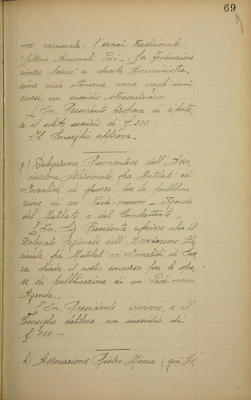 69
mo carnevale, l'ormai tradizionale
"Lotteria Automobili Pirz". La Federazione
invece lasciò a questa Amministra
zione nello stesso come negli anni
scorsi, un sussidio straordinario.
L'On. Presidente propone di ridurre
il solito sussidio di £ 500.-
Il Consiglio approva.
g) Delegazione Piemontese dell'Asso
ciazione Nazionale fra Mutilati ed
Invalidi di guerra, per la pubblica
zione di un Vade-mecum - Agenda
del Mutilato e del Combattente.
L'On. Sig. Presidente riferisce che il
Delegato Regionale dell'Associazione Na
zionale fra Mutilati ed Invalidi di Guer
ra chiede il nostro concorso per le spe
se di pubblicazione di un Vade-mecum
Agenda.
L'On. Presidente propone, e il
Consiglio delibera, un sussidio di
£ 100.-
h) Associazione Pietro Micca (già